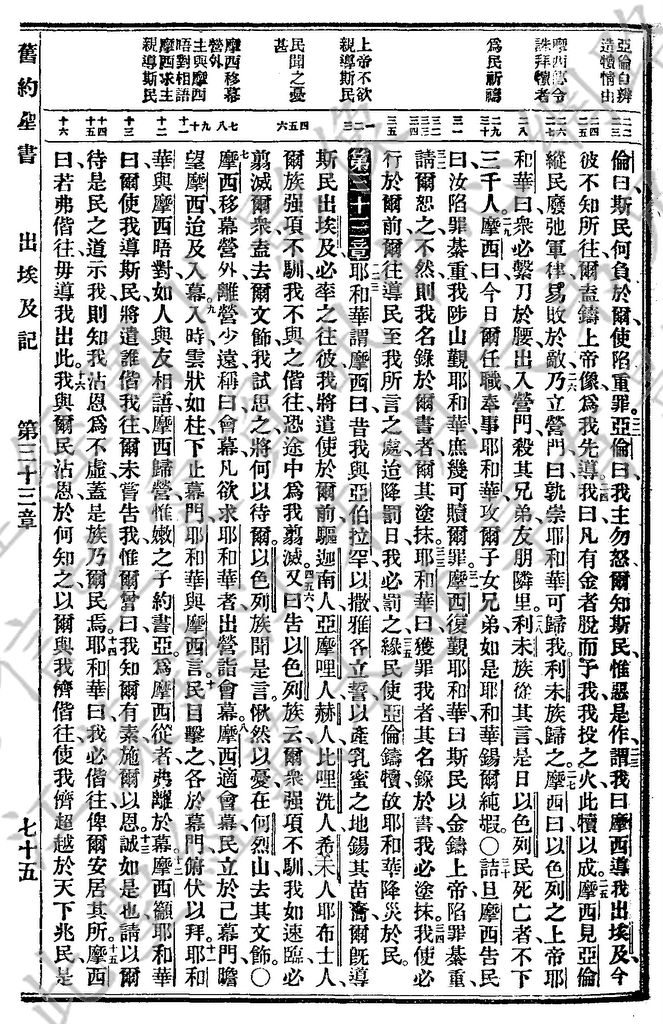 亞倫自辨造犢情由
摩西命令誅拜犢者
爲民祈禱
上帝不欲親導斯民
民聞之憂甚
摩西移幕營外
主與摩西晤對相語
摩西求主親導斯民
倫曰斯民何負於爾使陷重罪亞倫曰我主勿怒爾知斯民惟惡是作謂我曰摩西導我出埃及今
彼不知所往爾盍鑄上帝像爲我先導我曰凡有金者脫而予我我投之火此犢以成摩西見亞倫
縱民廢弛軍律易敗於敵乃立營門曰孰崇耶和華可歸我利未族歸之摩西曰以色列之上帝耶
和華曰衆必繫刀於腰出入營門殺其兄弟友朋隣里利未族從其言是日以色列民死亡者不下
三千人摩西曰今日爾任職奉事耶和華攻爾子女兄弟如是耶和華錫爾純嘏〇詰旦摩西告民
曰汝陷罪綦重我陟山覲耶和華庶幾可贖爾罪摩西復覲耶和華曰斯民以金鑄上帝陷罪綦重
請爾恕之不然則我名錄於爾書者爾其塗抹耶和華曰獲罪我者其名錄於書我必塗抹我使必
行於爾前爾往導民至我所言之處迨降罰日我必罰之緣民使亞倫鑄犢故耶和華降災於民
第三十三章 耶和華謂摩西曰昔我與亞伯拉罕以撒雅各立誓以產乳蜜之地錫其苗裔爾旣導
斯民出埃及必率之往彼我將遣使於爾前驅迦南人亞摩哩人赫人比哩洗人希未人耶布士人
爾族強項不馴我不與之偕往恐途中爲我翦滅又曰告以色列族云爾衆强項不馴我如速臨必
翦滅爾衆盍去爾文飾我試思之將何以待爾以色列族聞是言愀然以憂在何烈山去其文飾〇
摩西移幕營外離營少遠稱曰會幕凡欲求耶和華者出營詣會幕摩西適會幕民立於己幕門瞻
望摩西迨及入幕入時雲狀如柱下止幕門耶和華與摩西言民目擊之各於幕門俯伏以拜耶和
華與摩西晤對如人與友相語摩西歸營惟嫩之子約書亞爲摩西從者弗離於幕摩西籲耶和華
曰爾使我導斯民將遣誰偕我往爾未嘗告我惟爾嘗曰我知爾有素施爾以恩誠如是也請以爾
待是民之道示我則知我沾恩爲不虛蓋是族乃爾民焉耶和華曰我必偕往俾爾安居其所摩西
曰若弗偕往毋導我出此我與爾民沾恩於何知之以爾與我儕偕往使我儕超越於天下兆民是
舊約聖書 出埃及記 第三十三章 七十五